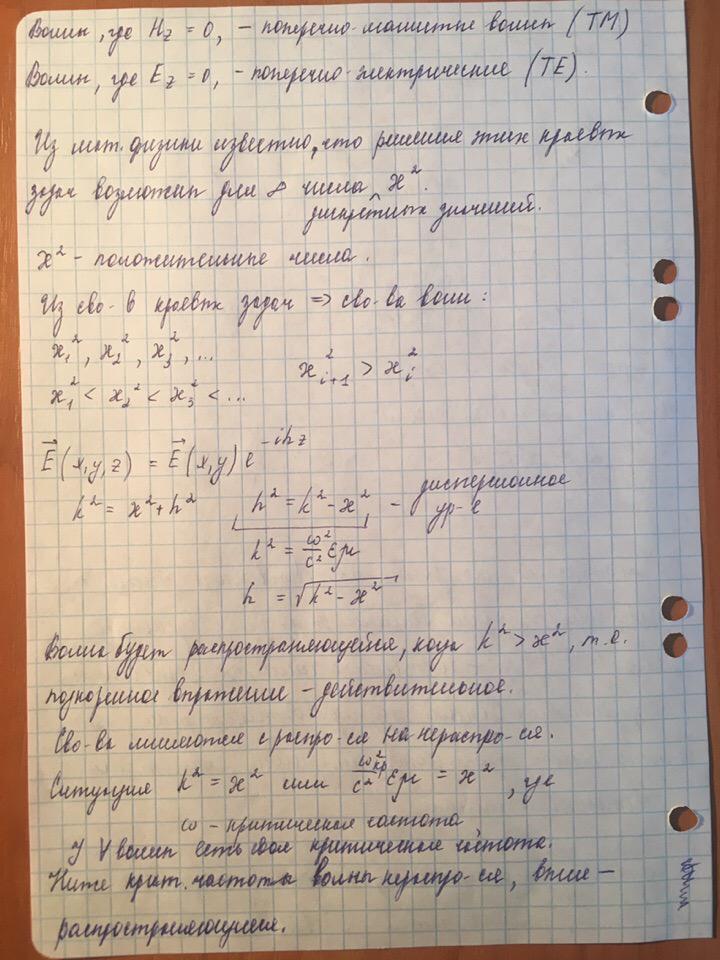 Волны, где H_z = 0, – поперечно-магнитные волны (TM)
Волны, где E_z = 0, – поперечно-электрические (TE).
Из мат. физики известно, что решения этих краевых
задач возможны для ∞ числа ^ ϰ².
дискретных значений.
ϰ² – положительные числа.
Из сво-в краевых задач => сво-ва волн:
ϰ₁², ϰ₂², ϰ₃², ...
ϰ²_{i+1} > ϰ²_i
ϰ₁² < ϰ₂² < ϰ₃² < ...
E⃗(x,y,z) = E⃗(x,y) e^{-ihz}
k² = ϰ² + h² h² = k² - ϰ² – дисперсионное
ур-е
k² = ω²/c² εμ
h = √(k² - ϰ²)
Волна будет распространяющейся, когда k² > ϰ², т.е.
подкоренное выражение – действительное.
Сво-ва меняются с распро-ся на нераспро-ся.
Ситуация k² = ϰ² или ω²_кр/c² εμ = ϰ², где
ω – критическая частота
У ∀ волны есть своя критическая частота.
Ниже крит. частоты волны нераспро-ся, выше –
распространяющиеся.